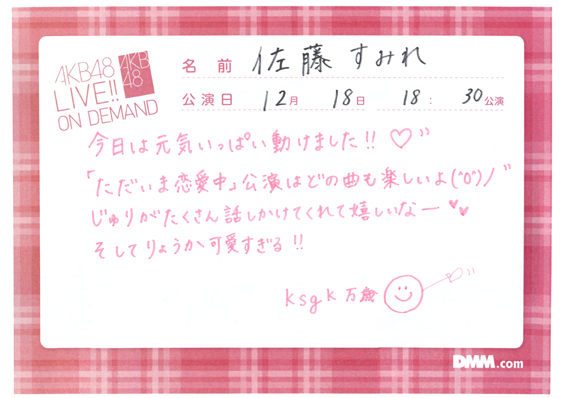 AKB48
LIVE!!
ON DEMAND
AKB
48
名前 佐藤 すみれ
公演日 12月 18日 18: 30公演
今日は元気いっぱい動けました!! ♡"
「ただいま恋愛中」公演はどの曲も楽しいよ(^o^)ノ"
じゅりがたくさん話しかけてくれて嬉しいなー♥♥
そしてりょうか可愛すぎる!!
ksgk 万歳
DMM.com